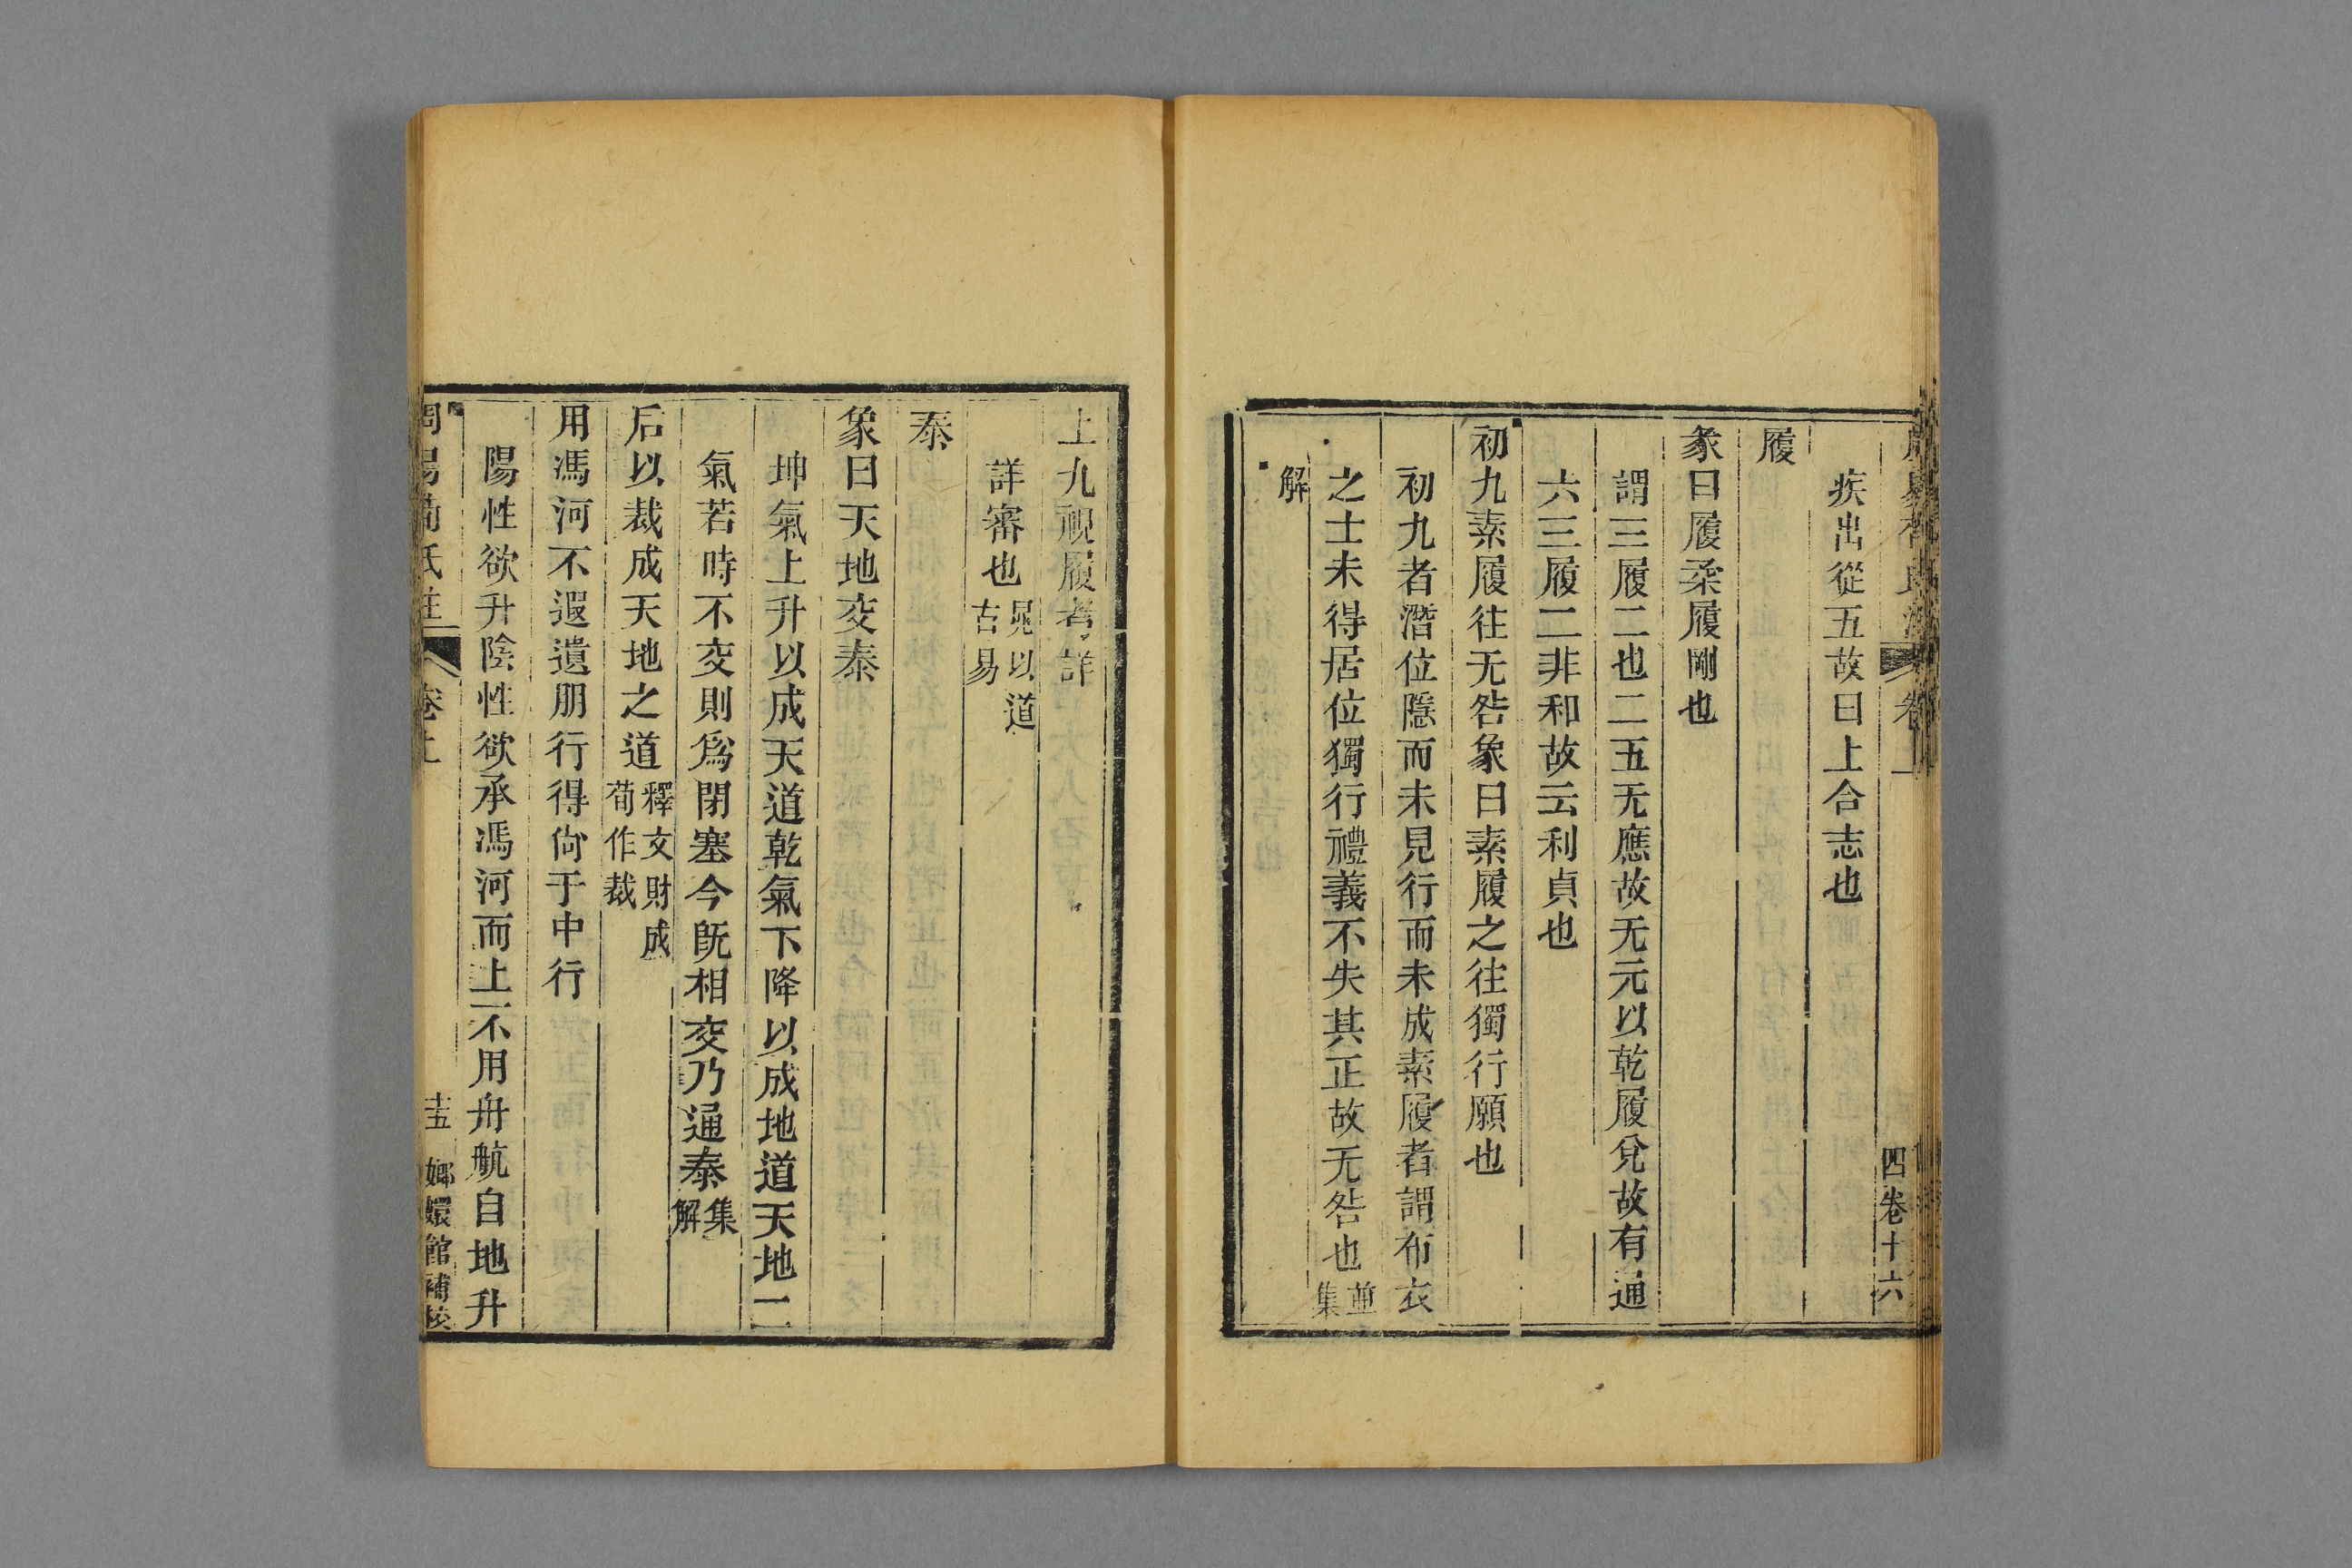 疾出從五故曰上合志也
履
彖曰履柔履剛也
謂三履二也二五无應故无元以乾履兌故有通
六三履二非和故云利貞也
初九素履往无咎象曰素履之往獨行願也
初九者潛位隱而未見行而未成素履者謂布衣
之士未得居位獨行禮義不失其正故无咎也並集
解
卷上
四卷十六
上九視履考詳
詳審也晁以道古易
泰
象曰天地交泰
坤氣上升以成天道乾氣下降以成地道天地二
氣若時不交則爲閉塞今旣相交乃通泰集解
后以裁成天地之道釋文財成荀作裁
用馮河不遐遺朋行得尙于中行
陽性欲升陰性欲承馮河而上不用舟航自地升
周易荀氏注 卷上 十五 嫏嬛館補校